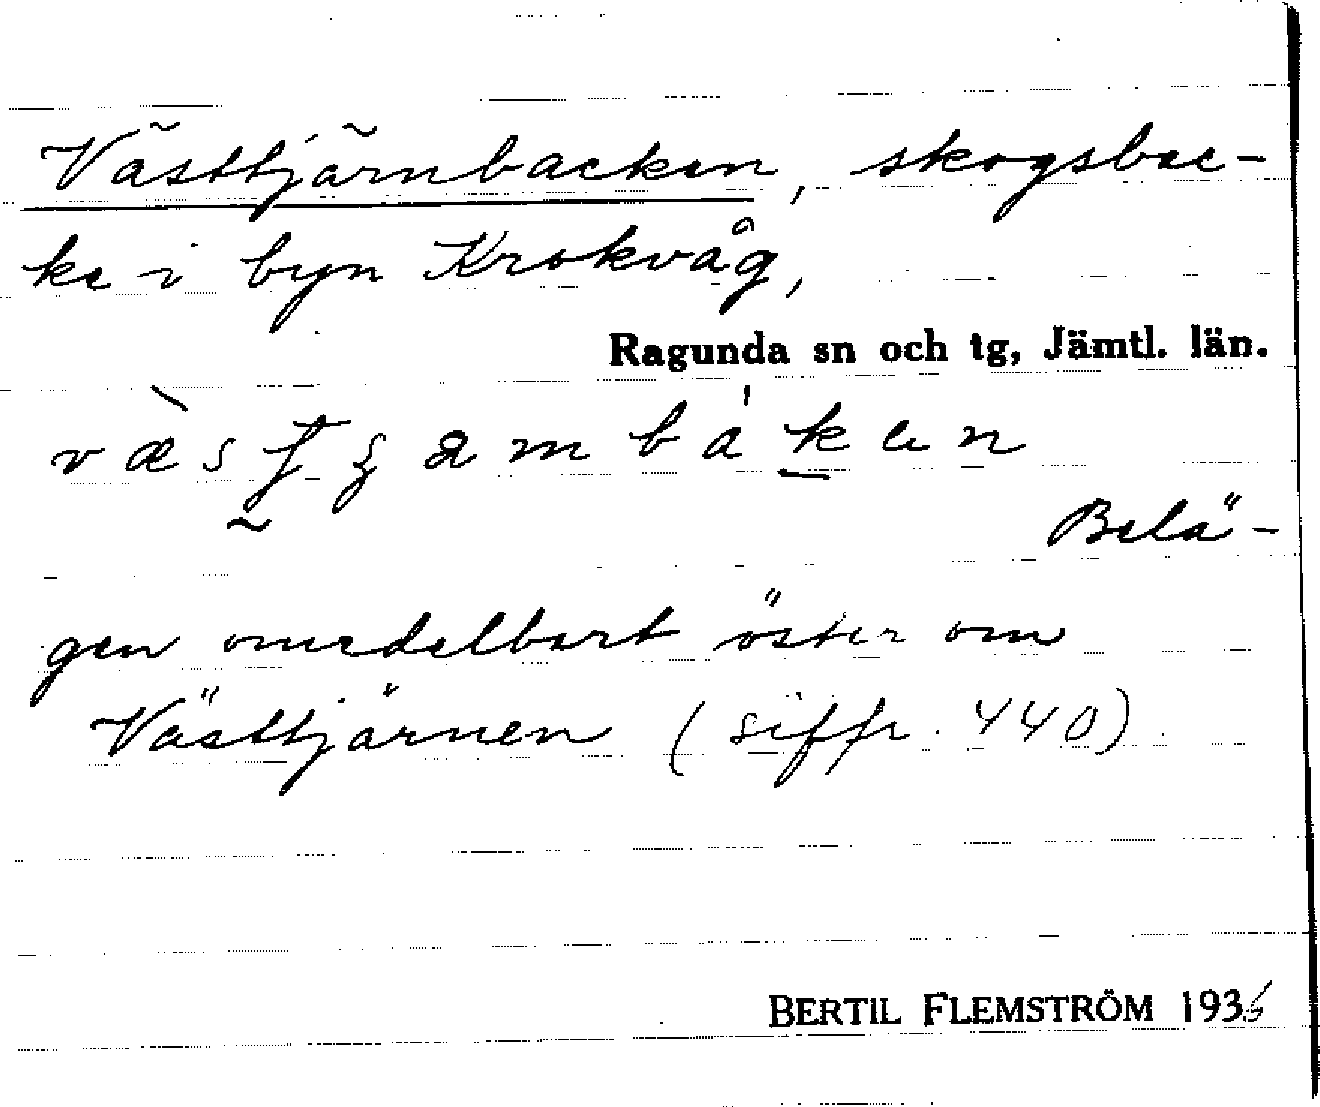 Västtjärnbacken, skogsbac-
ke i byn Krokvåg,
Ragunda sn och tg, Jämtl. län.
Belä-
gen omedelbart öster om
Västtjärnen (siffr. 440)
BERTIL FLEMSTRÖM 1936